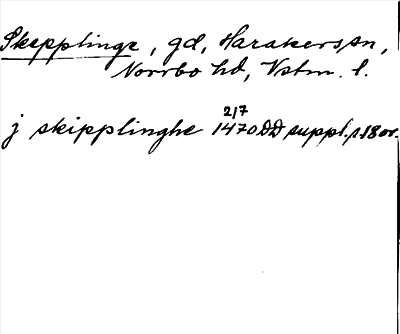 Skepplinge, gd, Harakers sn,
Norrbo hd, Vstm. l.
2/7
j skipplinghe 1470 DD suppl. s. 18 or.